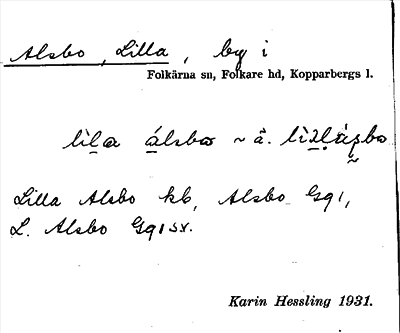 Alsbo, Lilla, by i
Folkärna sn, Folkare hd, Kopparbergs l.
lìla álsbo ~ å.
Lilla Alsbo kb, Alsbo Gq1,
L. Alsbo Gq1sv.
Karin Hessling 1931.